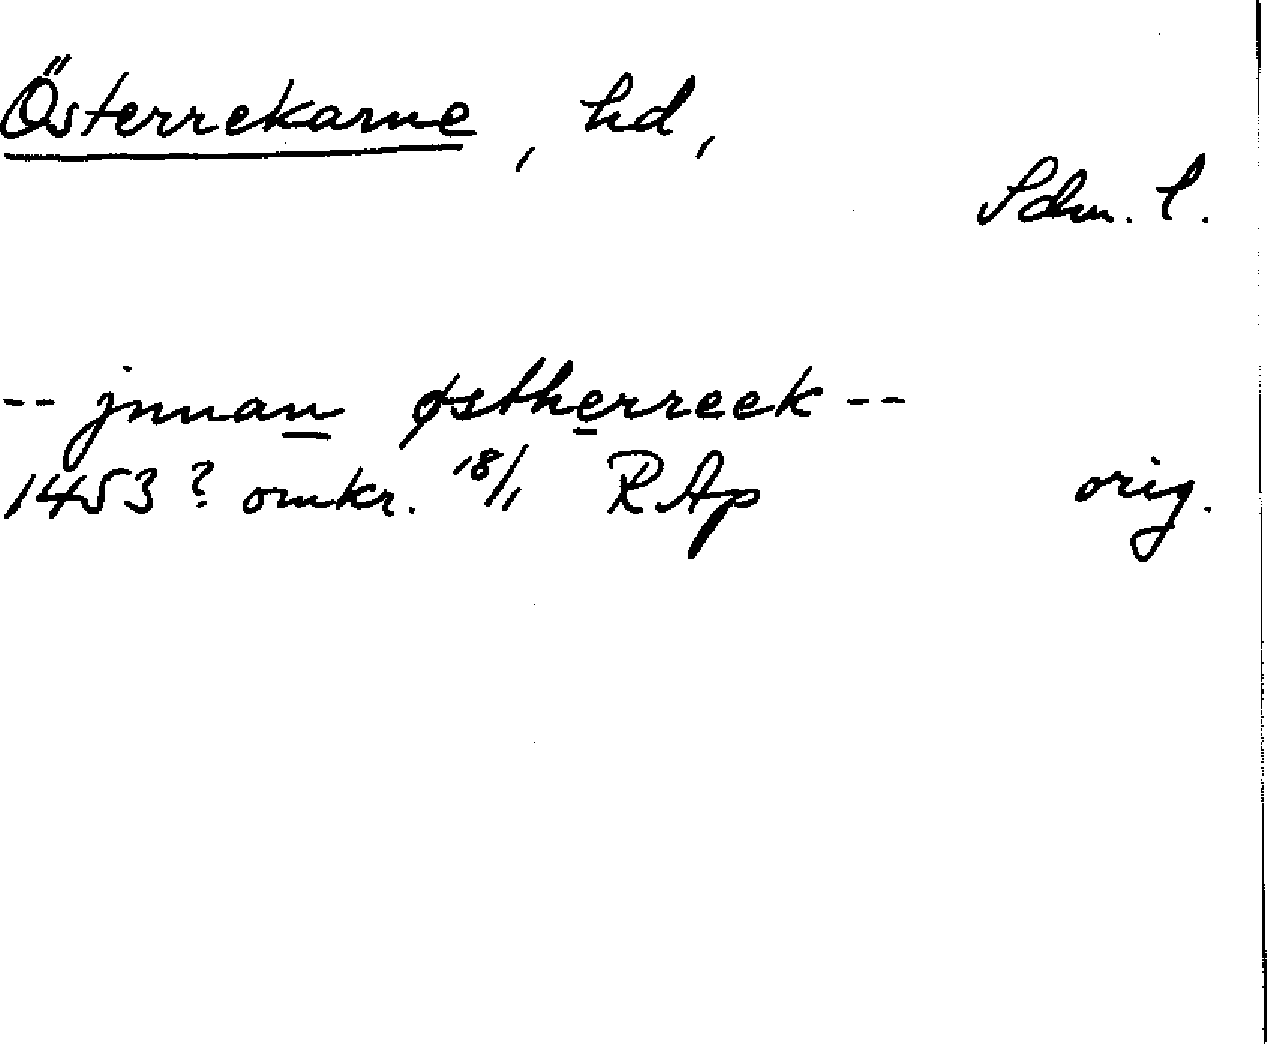 Österrekarne, hd,
Sdm. l.
-- jnnan østherreek --
1453? omkr. 18/1 RAp orig.